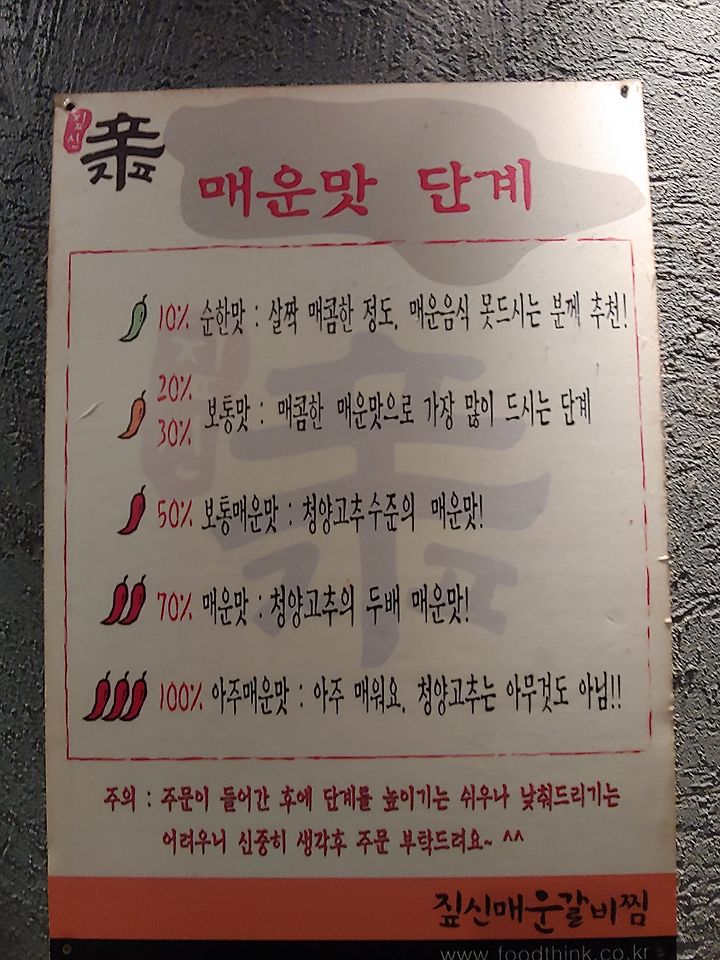 짚신
매운맛 단계
10% 순한맛 : 살짝 매콤한 정도, 매운음식 못드시는 분께 추천!
20%
30% 보통맛 : 매콤한 매운맛으로 가장 많이 드시는 단계
50% 보통매운맛 : 청양고추수준의 매운맛!
70% 매운맛 : 청양고추의 두배 매운맛!
100% 아주매운맛 : 아주 매워요, 청양고추는 아무것도 아님!!
주의 : 주문이 들어간 후에 단계를 높이기는 쉬우나 낮춰드리기는
어려우니 신중히 생각후 주문 부탁드려요~ ^^
짚신매운갈비찜
www.foodthink.co.kr